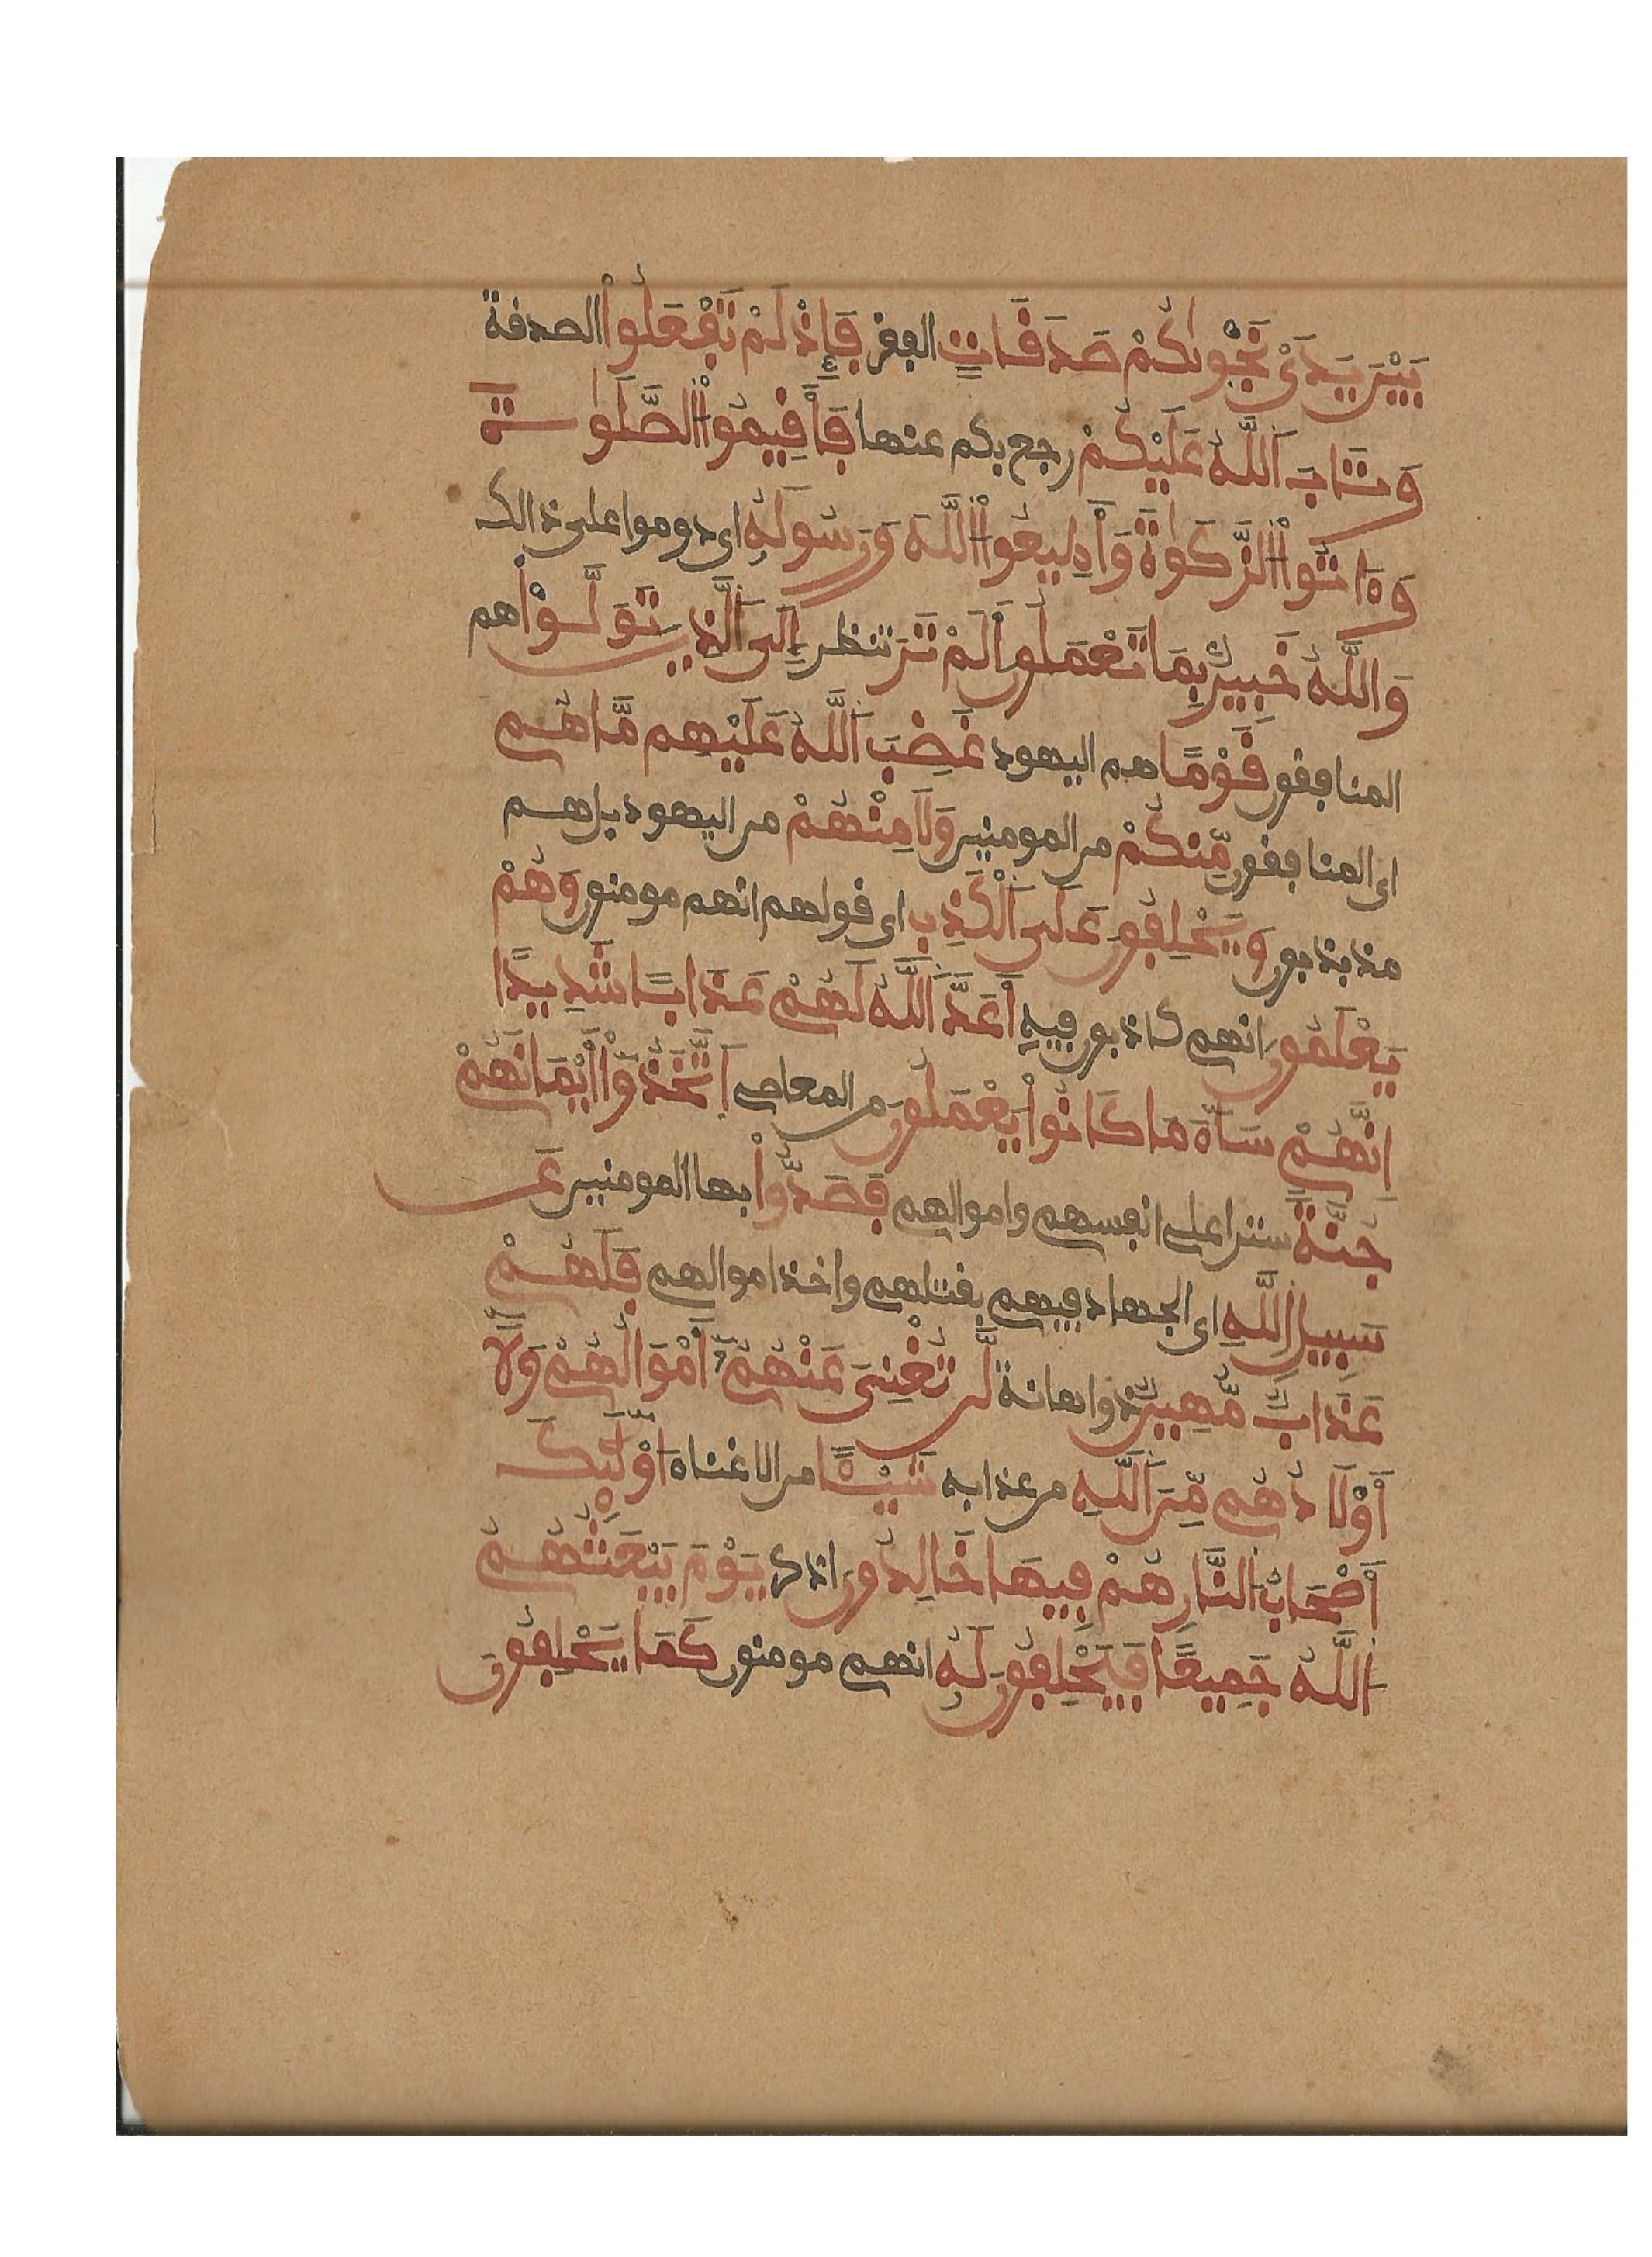 بَيْنَ يَدَىْ نَجْوٰىكُمْ صَدَقَاتٍ الفقر فَإِذْ لَمْ تَفْعَلُواْ الصدقة
وَتَابَ اَللَّهُ عَلَيْكُمْ رجع بكم عنها فَأَقِيمُواْ الصَّلَوٰةَ
وَءَاتُواْ الزَّكَوٰةَ وَأَطِيعُواْ اللَّهَ وَرَسُولَهُ اى دوموا على ذالك
وَاللَّهُ خَبِيرٌ بِمَا تَعْمَلُونَ أَلَمْ تَرَ تنظر إِلَى اَلذِينَ تَوَلَّوْاْ هم
المنافقون قَوْمًا هم اليهود غَضِبَ اَللَّهُ عَلَيْهِم مَّا هُم
اى المنافقون مِّنكُمْ من المومنين وَلَا مِنْهُمْ من اليهود بل هم
مذبذبون وَيَحْلِفُونَ عَلَى اَلْكَذِبِ اى قولهم انهم مومنون وَهُمْ
يَعْلَمُونَ انهم كاذبون فيه أَعَدَّ اَللَّهُ لَهُمْ عَذَابًا شَدِيدًا
اِنَّهُمْ سَآءَ مَا كَانُواْ يَعْمَلُونَ من المعاصى اَتَّخَذُواْ أَيْمَانَهُمْ
جُنَّةً سترا على انفسهم واموالهم فَصَدُّواْ بها المومنين عَن
سَبِيلِ اللَّهِ اى الجهاد فيهم بقتلهم واخذ اموالهم فَلَهُمْ
عَذَابٌ مُّهِينٌ ذو اهانة لَّن تُغْنِىَ عَنْهُمُۥٓ أَمْوَالُهُمْ وَلَآ
أَوْلَادُهُم مِّنَ اَللَّهِ من عذابه شَيْـًٔا من الاغناء اُوْلَٰٓئِكَ
أَصْحَابُ النَّارِ هُمْ فِيهَا خَالِدُونَ اذكر يَوْمَ يَبْعَثُهُمُ
اَللَّهُ جَمِيعًا فَيَحْلِفُونَ لَهُ انهم مومنون كَمَا يَحْلِفُونَ